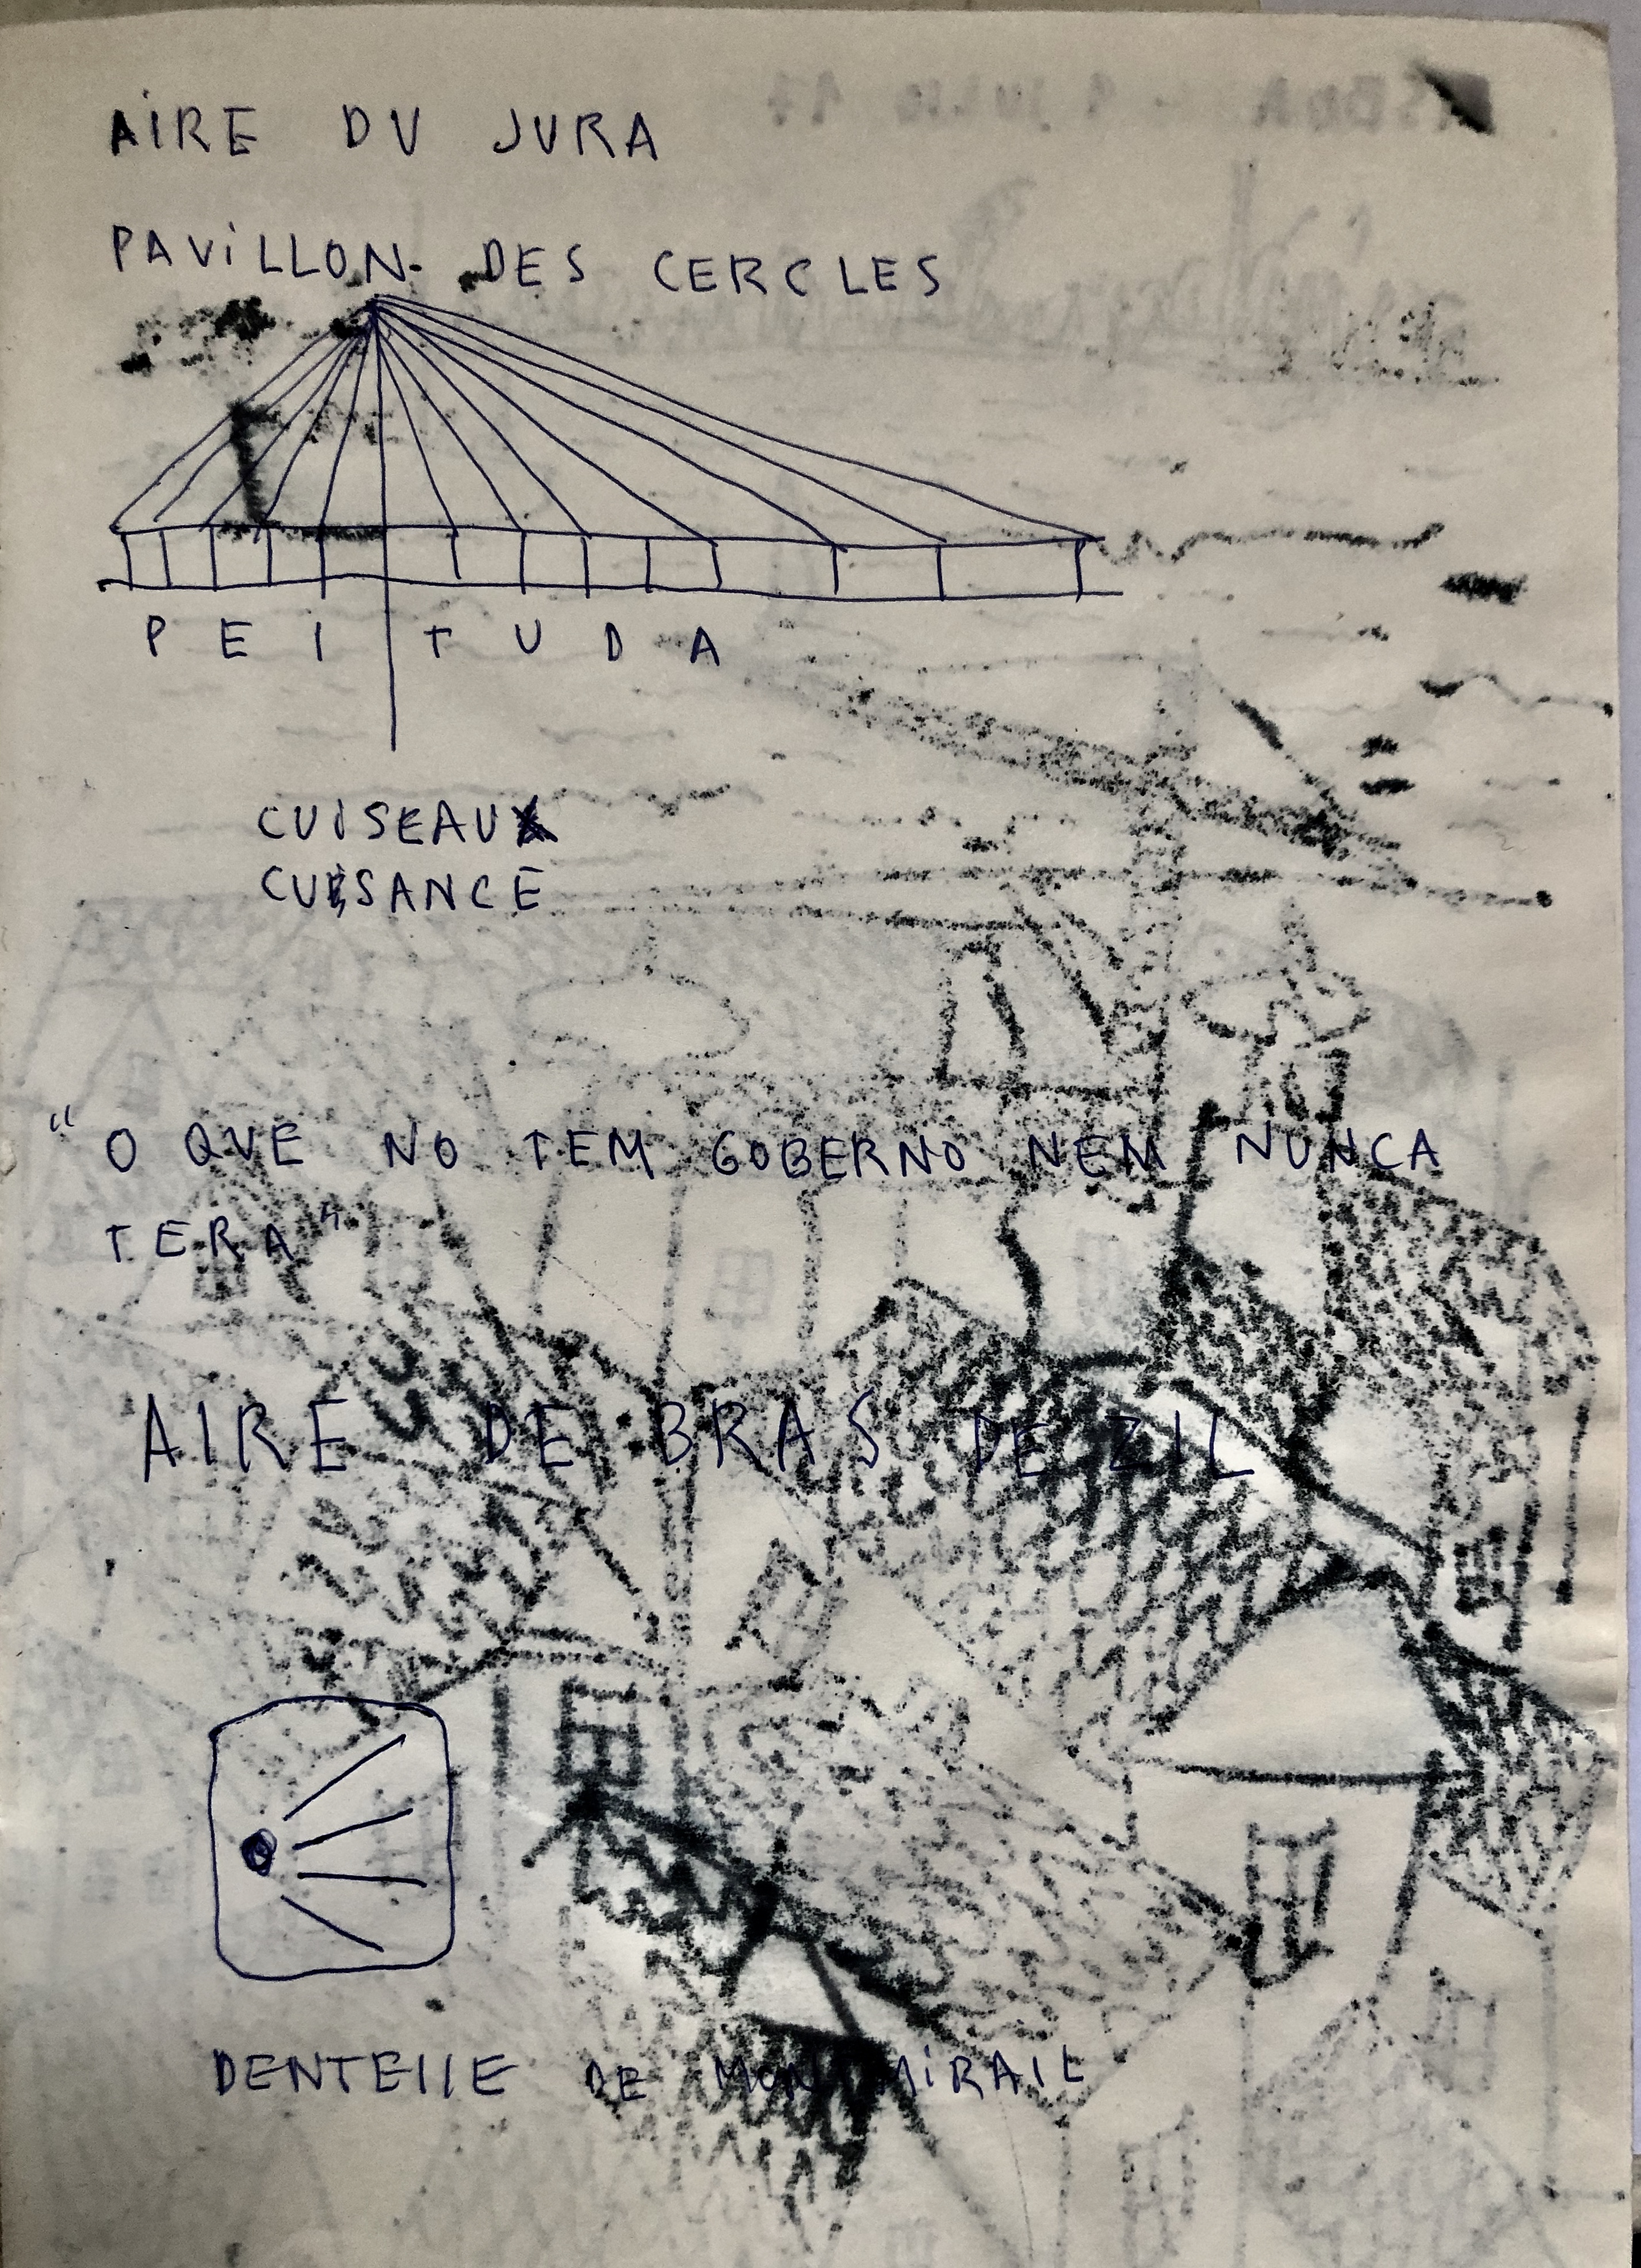 AIRE DU JURA
PAVILLON DES CERCLES
P E I T U D A
CUISEAUX
CUISANCE
“O QUE NO TEM GOBERNO NEM NUNCA
TERA”
AIRE DE BRAS DE ZIL
DENTELLE DE MONTMIRAIL